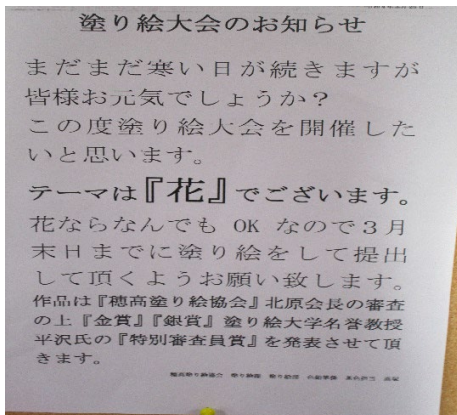 塗り絵大会のお知らせ
まだまだ寒い日が続きますが
皆様お元気でしょうか?
この度塗り絵大会を開催した
いと思います。
テーマは『花』でございます。
花ならなんでも OK なので3月
末日までに塗り絵をして提出
して頂くようお願い致します。
作品は『穂高塗り絵協会』北原会長の審査
の上『金賞』『銀賞』塗り絵大学名誉教授
平沢氏の『特別審査員賞』を発表させて頂
きます。